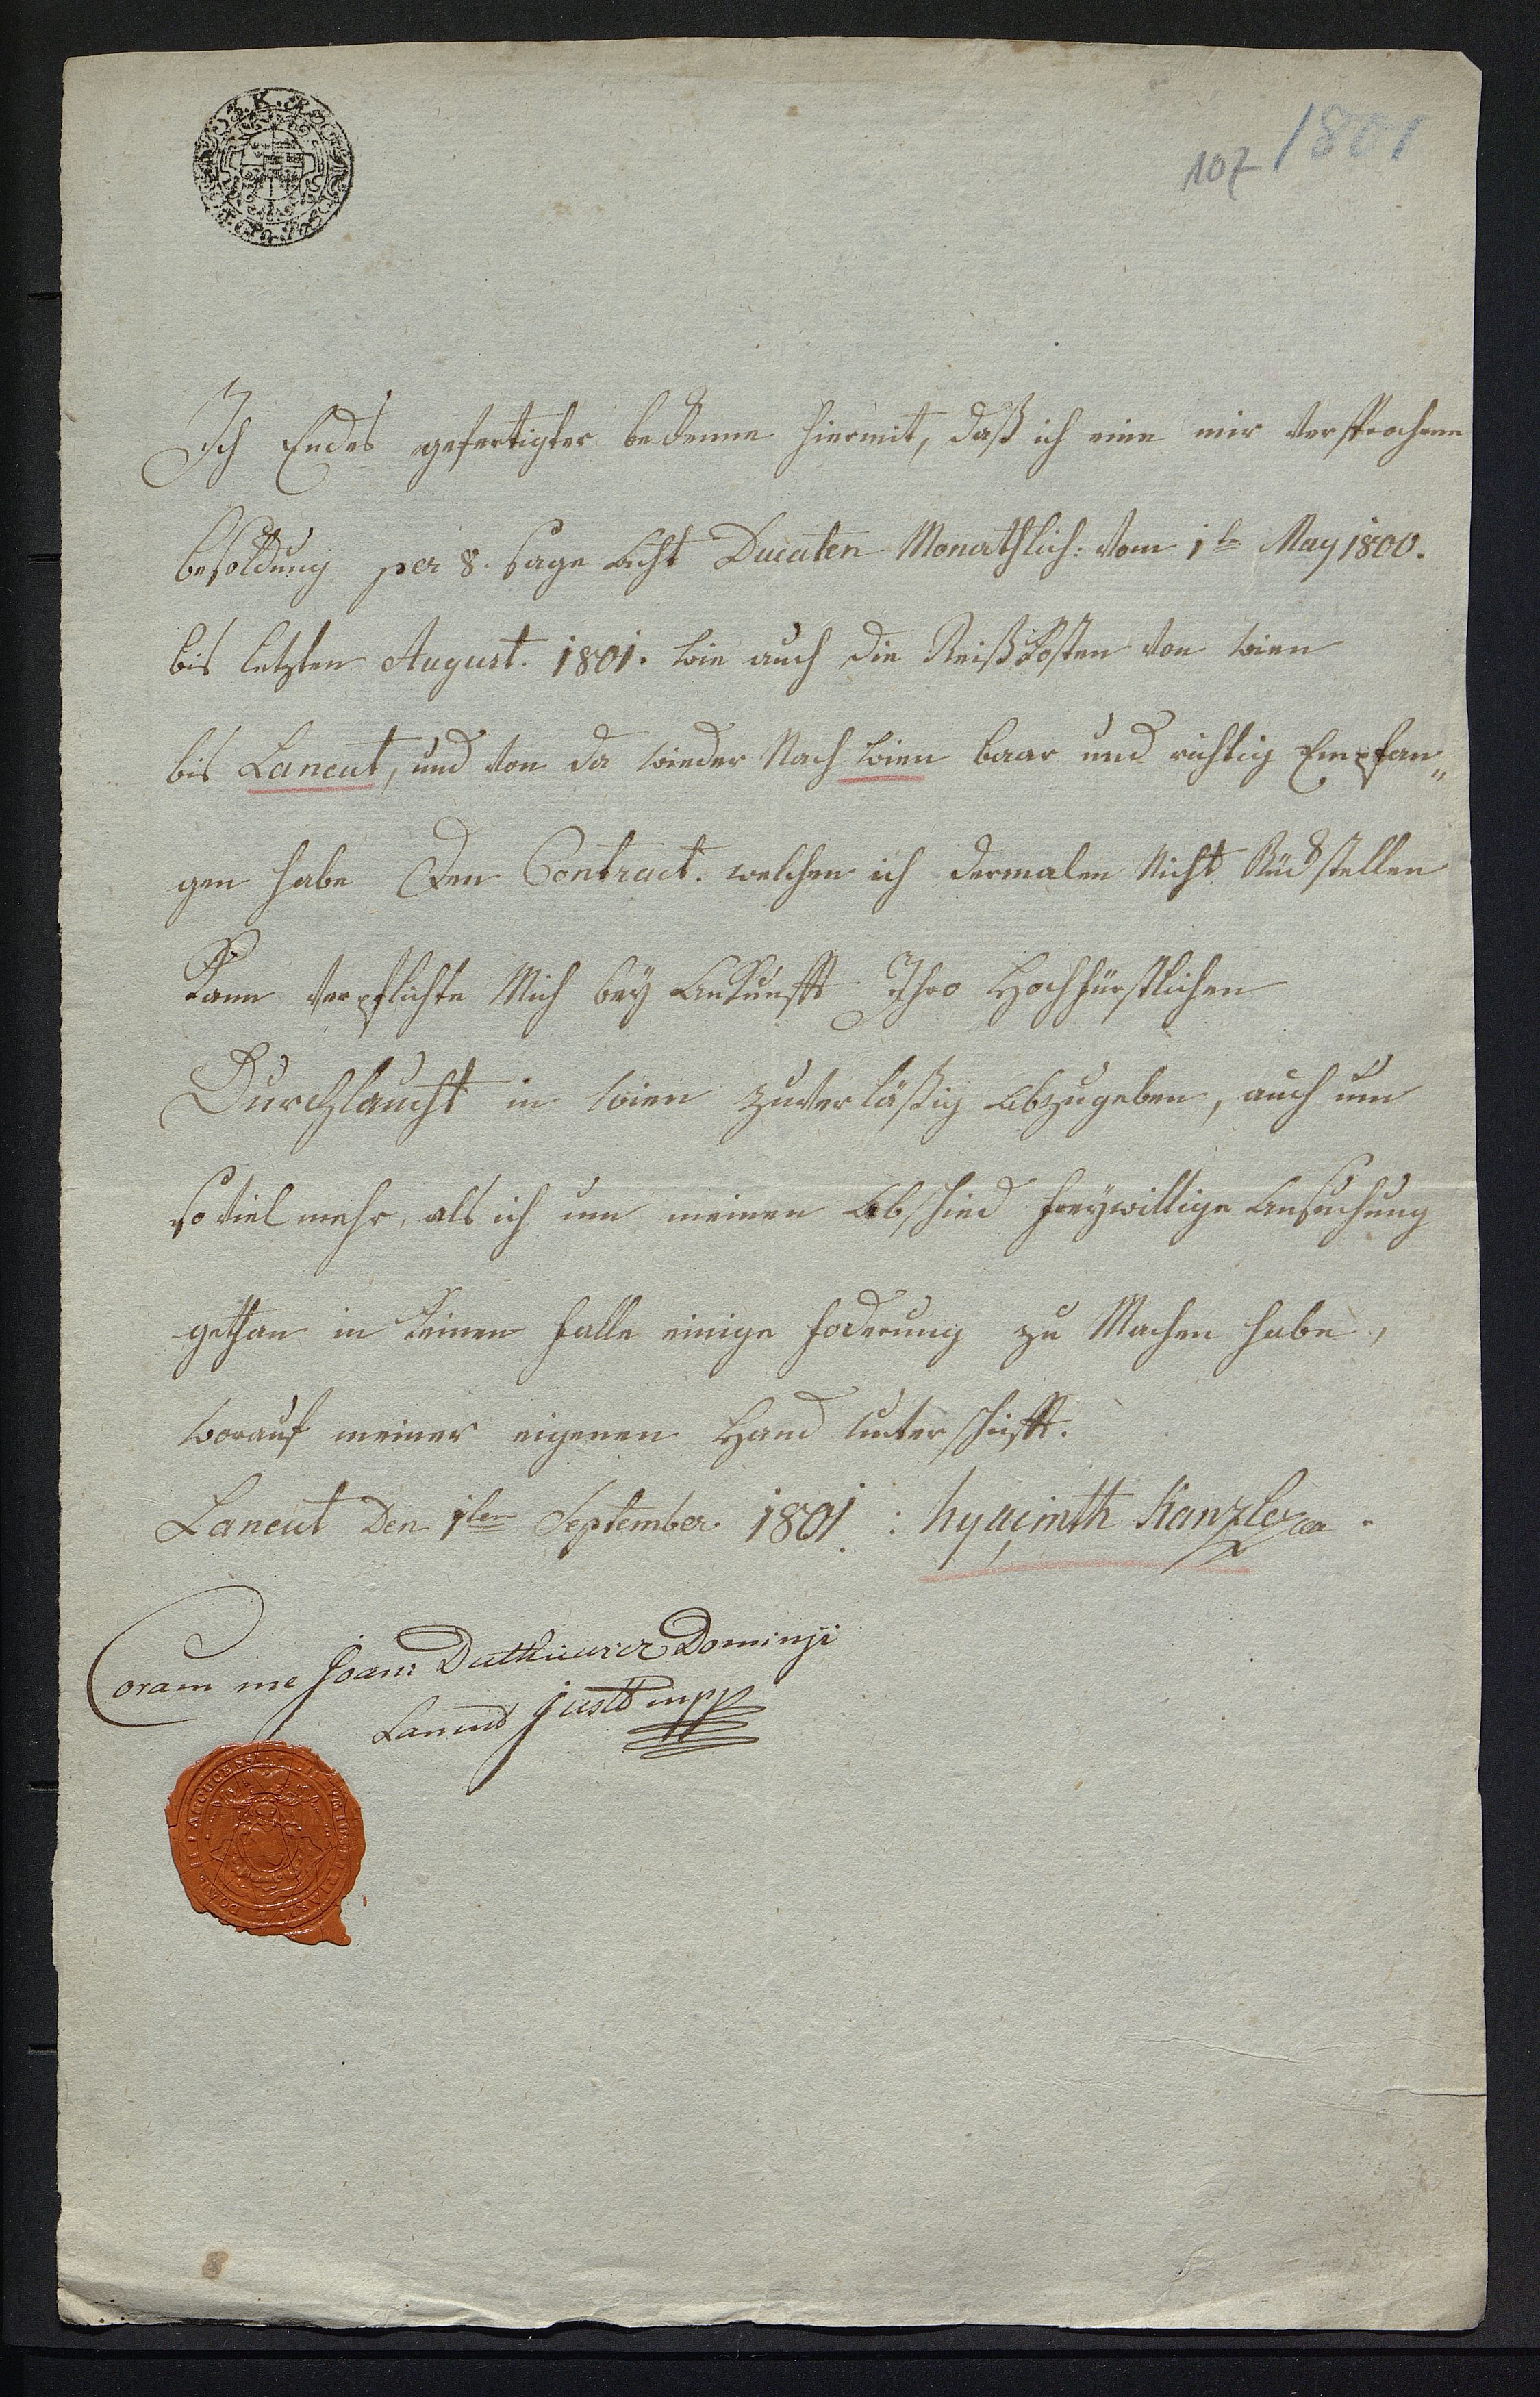 107 1801
Ich Endes gefertigter bekenne hiermit, daß ich eine mir versprochene
besoldung per 8. sage Acht Ducaten Monathlich: vom 1ten May 1800.
bis letzten August. 1801. wie auch die Reißkosten von wien
bis Lancut, und von da wieder Nach wien baar und richtig Empfan„
gen habe Den Contract. welchen ich dermalen Nicht Rückstellen
kann verpflichte Mich bey Ankunfft Ihro Hochfürstlichen
Durchlaucht in wien zuverläßig abzugeben, auch um
so viel mehr, als ich um meinen Abschied freywillige Ansuchung
gethan in keinen falle einige foderung zu Machen habe,
worauf meiner eigenen Hand unterschifft.
Lancut den 1ten September 1801. : hyacinth Kanzler
Coram me Joan: Dominji
Lancut Justt mpp